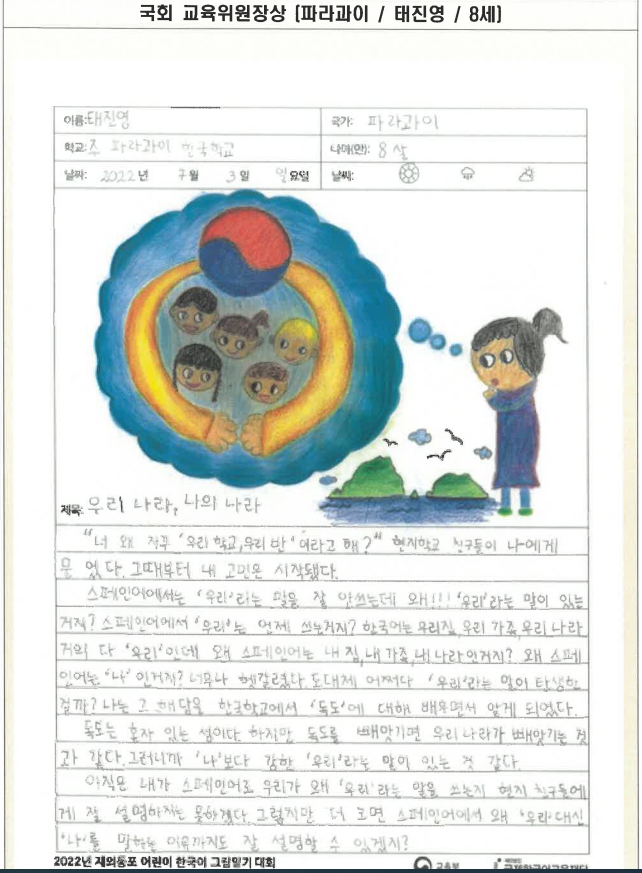 국회 교육위원장상 (파라과이 / 태진영 / 8세)
이름: 태진영 국가: 파라과이
학교: 주 파라과이 한국학교 나이(만): 8 살
날짜: 2022년 7월 3일 일요일 날씨:
제목: 우리 나라, 나의 나라
"너 왜 자꾸 '우리 학교, 우리 반' 이라고 해?" 현지학교 친구들이 나에게
물었다. 그때부터 내 고민은 시작됐다.
스페인어에서는 '우리'라는 말을 잘 안쓰는데 왜!!! '우리'라는 말이 있는
거지? 스페인어에서 '우리'는 언제 쓰는거지? 한국어는 우리집, 우리 가족, 우리 나라
거의 다 '우리'인데 왜 스페인어는 내 집, 내 가족, 내 나라인거지? 왜 스페
인어는 '나' 인거지? 너무나 헷갈렸다. 도대체 어쩌다 '우리'라는 말이 탄생한
걸까? 나는 그 해답을 한국학교에서 '독도'에 대해 배우면서 알게 되었다.
독도는 혼자 있는 섬이다. 하지만 독도를 빼앗기면 우리 나라가 빼앗기는 것
과 같다. 그러니까 '나'보다 강한 '우리'라는 말이 있는 것 같다.
아직은 내가 스페인어로 우리가 왜 '우리'라는 말을 쓰는지 현지 친구들에
게 잘 설명하지는 못하겠다. 그렇지만 더 크면 스페인어에서 왜 '우리' 대신
'나'를 말하는 이유까지도 잘 설명할 수 있겠지?
2022년 재외동포 어린이 한국어 그림일기 대회 교육부 국제한국어교육재단